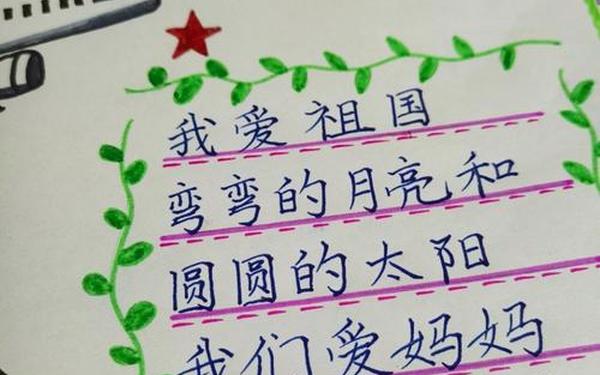 我爱祖国
弯弯的月亮和
圆圆的太阳
我们爱妈妈